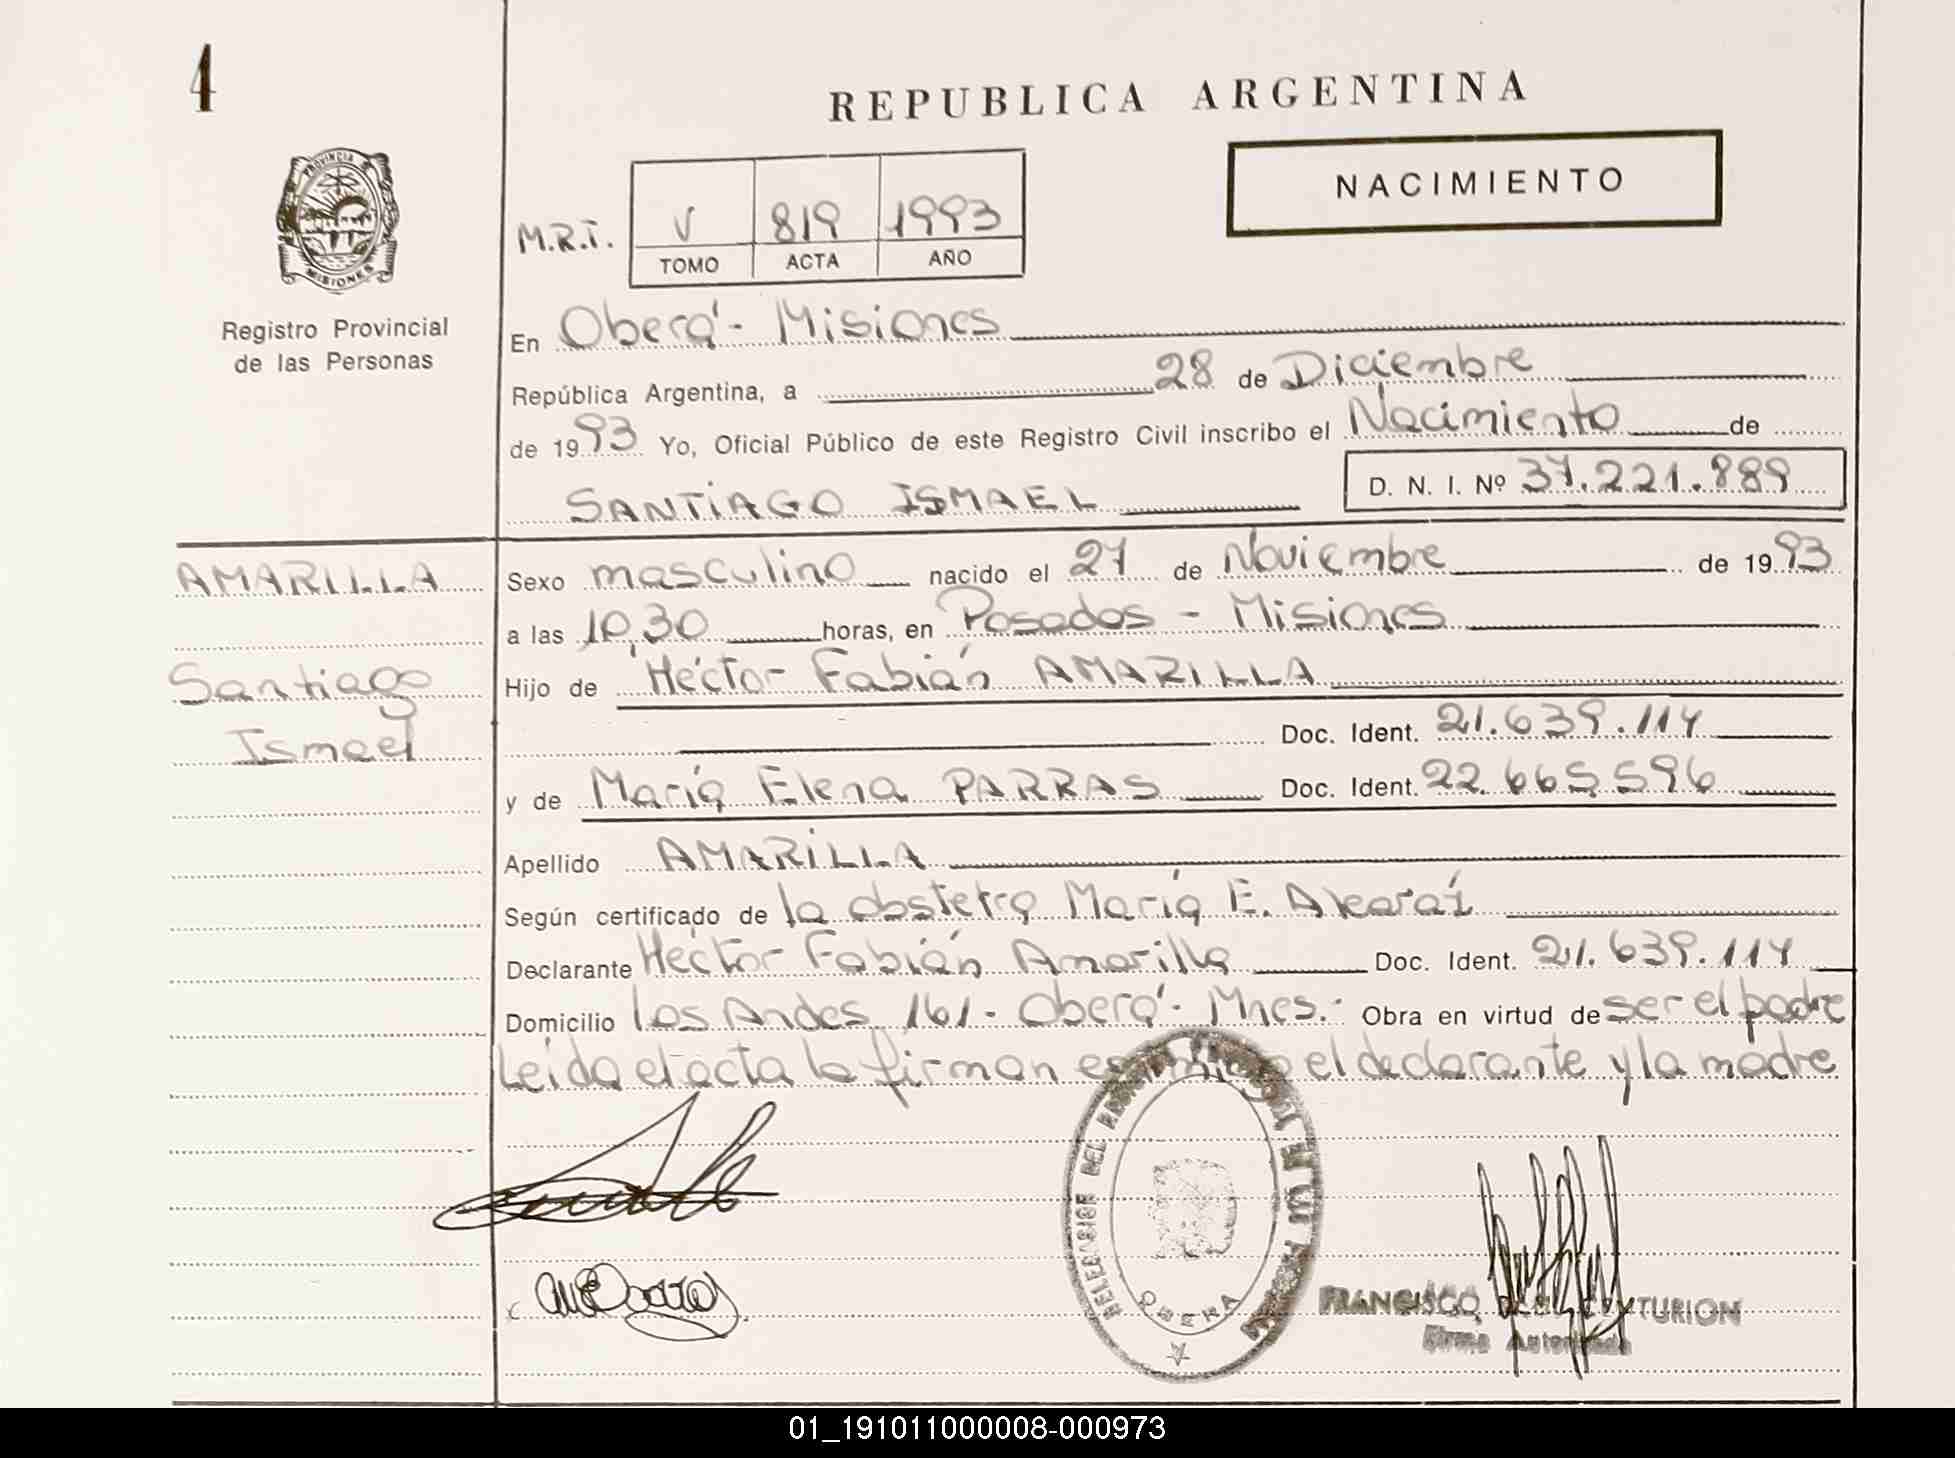 4
REPUBLICA ARGENTINA
NACIMIENTO
PROVINCIA
MISIONES
Registro Provincial
de las Personas
M.R.I.
V 819 1993
TOMO ACTA AÑO
En Oberá - Misiones
República Argentina, a 28 de Diciembre
de 1993 Yo, Oficial Público de este Registro Civil inscribo el Nacimiento de
SANTIAGO ISMAEL D. N. I. Nº 37.221.889
AMARILLA
Santiago
Ismael
Sexo masculino nacido el 27 de Noviembre de 1993
a las 10,30 horas, en Posadas - Misiones
Hijo de Héctor Fabián AMARILLA
Doc. Ident. 21.639.114
y de María Elena PARRAS Doc. Ident. 22.665.596
Apellido AMARILLA
Según certificado de la obstetra María E. Alcaráz
Declarante Héctor Fabián Amarilla Doc. Ident. 21.639.114
Domicilio Los Andes 161 - Oberá - Mnes. Obra en virtud de ser el padre
Leída el acta la firman el declarante y la madre
DELEGACION DEL
OBERA
FRANCISCO CENTURION
Firma Autorizada
01_191011000008-000973